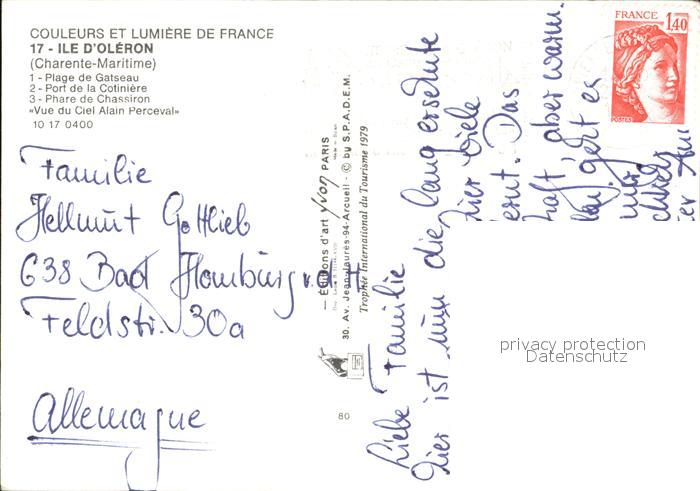 COULEURS ET LUMIÈRE DE FRANCE
17 - ILE D'OLÉRON
(Charente-Maritime)
1 - Plage de Gatseau
2 - Port de la Cotinière
3 - Phare de Chassiron
«Vue du Ciel Alain Perceval»
10 17 0400
Familie
Hellmut Gottlieb
638 Bad Homburg v.d.H
Feldstr. 30a
Allemagne
— Éditions d'art Yvon PARIS
30. Av. Jean-Jaurès-94-Arcueil - © by S.P.A.D.E.M.
Trophée International du Tourisme 1979
80
FRANCE
1,40
POSTES
Liebe Familie
Hier ist nun die lang ersehnte
hier viele
ernt. Das
haft, aber warm.
geht es
mir
privacy protection
Datenschutz